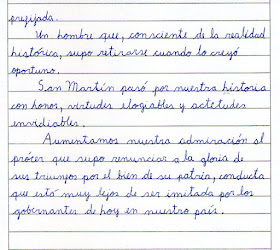 prefijada.
Un hombre que, consciente de la realidad
histórica, supo retirarse cuando lo creyó
oportuno.
San Martín pasó por nuestra historia
con honor, virtudes elogiables y actitudes
envidiables.
Aumentamos nuestra admiración al
prócer que supo renunciar a la gloria de
sus triunfos por el bien de su patria, conducta
que está muy lejos de ser imitada por los
gobernantes de hoy en nuestro país.